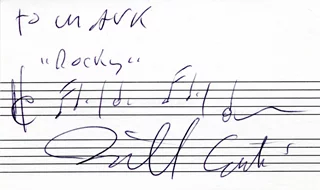 to MARK
"Rocky"
Bill Conti